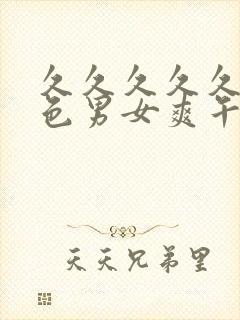 久久久久久
色男女爽午
天天兄弟里